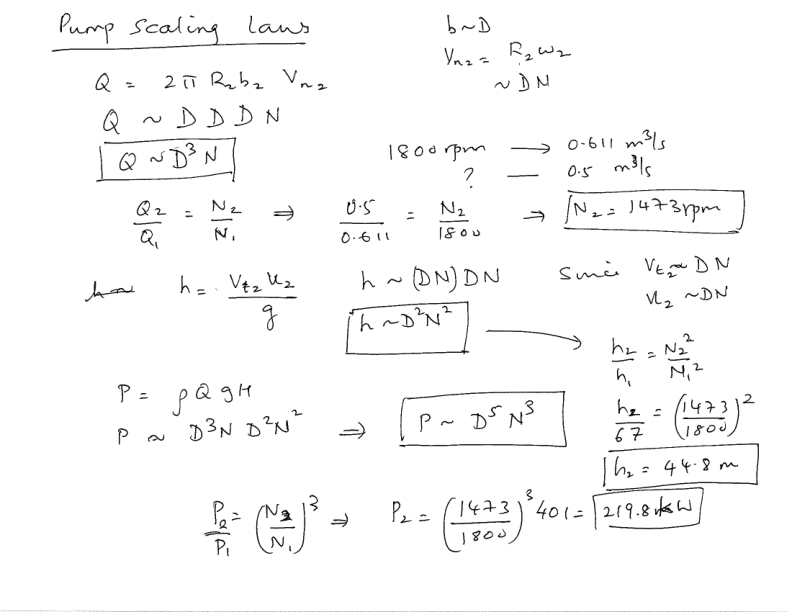 Pump Scaling Laws
b ~ D
V_{n2} = R_2 ω_2
~ DN
Q = 2π R_2 b_2 V_{n2}
Q ~ D D D N
Q ~ D^3 N
1800 rpm → 0.611 m^3/s
? — 0.5 m^3/s
Q_2/Q_1 = N_2/N_1 ⇒ 0.5/0.611 = N_2/1800 → N_2 = 1473 rpm
h = V_{t2} U_2 / g
h ~ (DN) DN
Since V_{t2} ~ DN
U_2 ~ DN
h ~ D^2 N^2 →
h_2/h_1 = N_2^2/N_1^2
h_2/67 = (1473/1800)^2
h_2 = 44.8 m
P = ρ Q g H
P ~ D^3 N D^2 N^2 ⇒ P ~ D^5 N^3
P_2/P_1 = (N_2/N_1)^3 ⇒ P_2 = (1473/1800)^3 401 = 219.8 kW